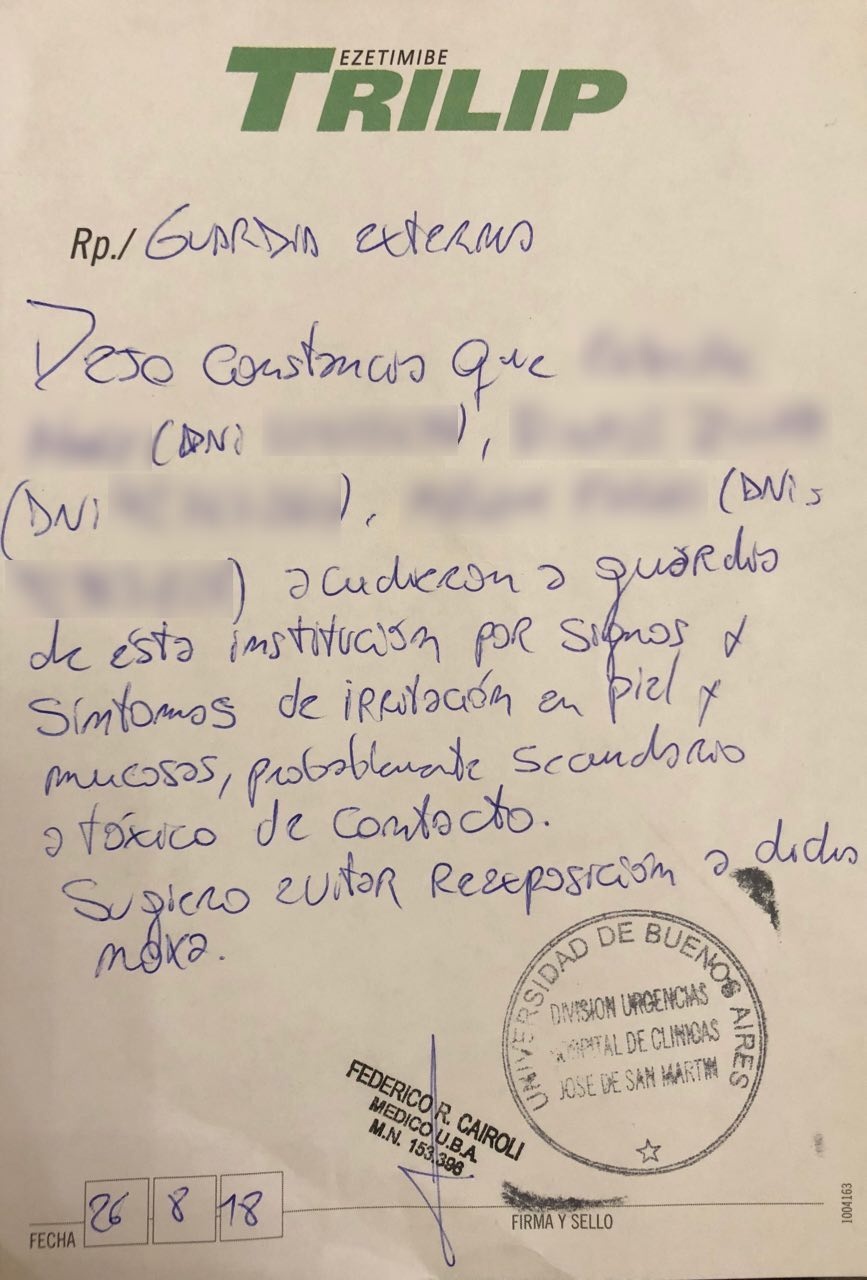 EZETIMIBE
TRILIP
Rp./ GUARDIA EXTERNA
Dejo constancia que
(DNI ),
(DNI ), (DNI
) acudieron a guardia
de ésta institución por signos y
síntomas de irritación en piel y
mucosas, probablemente secundario
a tóxico de contacto.
Sugiero evitar reexposición a dicha
noxa.
UNIVERSIDAD DE BUENOS AIRES
DIVISION URGENCIAS
HOSPITAL DE CLINICAS
JOSE DE SAN MARTIN
FEDERICO R. CAIROLI
MEDICO U.B.A.
M.N. 153.396
FECHA 26 8 18
FIRMA Y SELLO
1004163